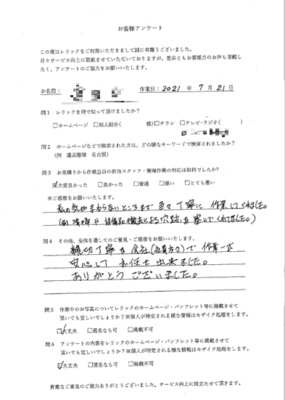 お客様アンケート
この度はレリックをご利用いただきまして誠に有難うございました。
日々サービス向上に取組ませていただいておりますが、是非ともお客様方のお声も反映し
たく、アンケートのご協力をお願いいたします。
お名前： 作業日：2021年7月21日
問1 レリックを何で知って頂けましたか？
□ホームページ □知人紹介( 様) □チラシ □テレビ・ラジオ(
問2 ホームページなどで検索された方は、どの様なキーワードで検索されましたか？
(例 遺品整理 名古屋)
問3 お見積りから作業当日の担当スタッフ・現場作業の対応は如何でしたか？
大変良かった □良かった □普通 □悪い □とても悪い
※ご感想をお願いいたします。
作業してくれました。
問4 その他、全体を通してのご意見・ご感想をお願いいたします。
親切丁寧な会社(社員方)で作業一を
安心してお任せ出来ました。
ありがとうございました。
問5 作業中のお写真についてレリックのホームページ・パンフレット等に掲載させて
頂いても宜しいでしょうか？※個人が特定される様な情報はモザイク処理をします。
大丈夫 □匿名なら可 □掲載不可
問6 アンケートの内容をレリックのホームページ・パンフレット等に掲載させて
頂いても宜しいでしょうか？※個人が特定される様な情報はモザイク処理をします。
大丈夫 □匿名なら可 □掲載不可
貴重なご意見のご協力ありがとうございました。サービス向上に役立たせて頂きます。